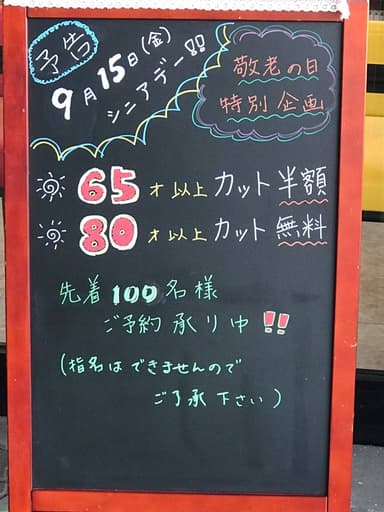 予告
9月15日(金)
シニアデー!!
敬老の日
特別企画
65才以上カット半額
80才以上カット無料
先着100名様
ご予約承り中!!
(指名はできませんので
ご了承下さい)